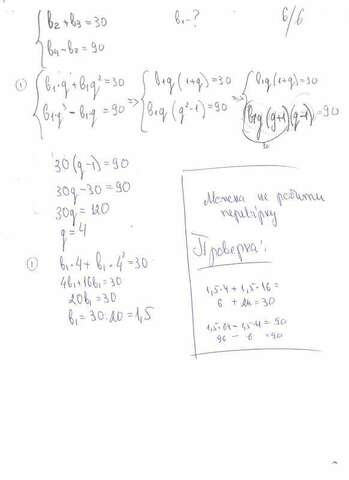 b₂ + b₃ = 30 b₁ - ? 6/6
b₄ - b₂ = 90
① b₁·q + b₁q² = 30 => b₁q(1+q) = 30 => b₁q(1+q) = 30
b₁q³ - b₁q = 90 => b₁q(q²-1) = 90 b₁q(q+1)(q-1) = 90
30
30(q-1) = 90
30q - 30 = 90
30q = 120
q = 4
① b₁·4 + b₁·4² = 30
4b₁ + 16b₁ = 30
20b₁ = 30
b₁ = 30:20 = 1,5
Можна не робити
перевірку
Проверка:
1,5·4 + 1,5·16 =
6 + 24 = 30
1,5·64 - 1,5·4 = 90
96 - 6 = 90